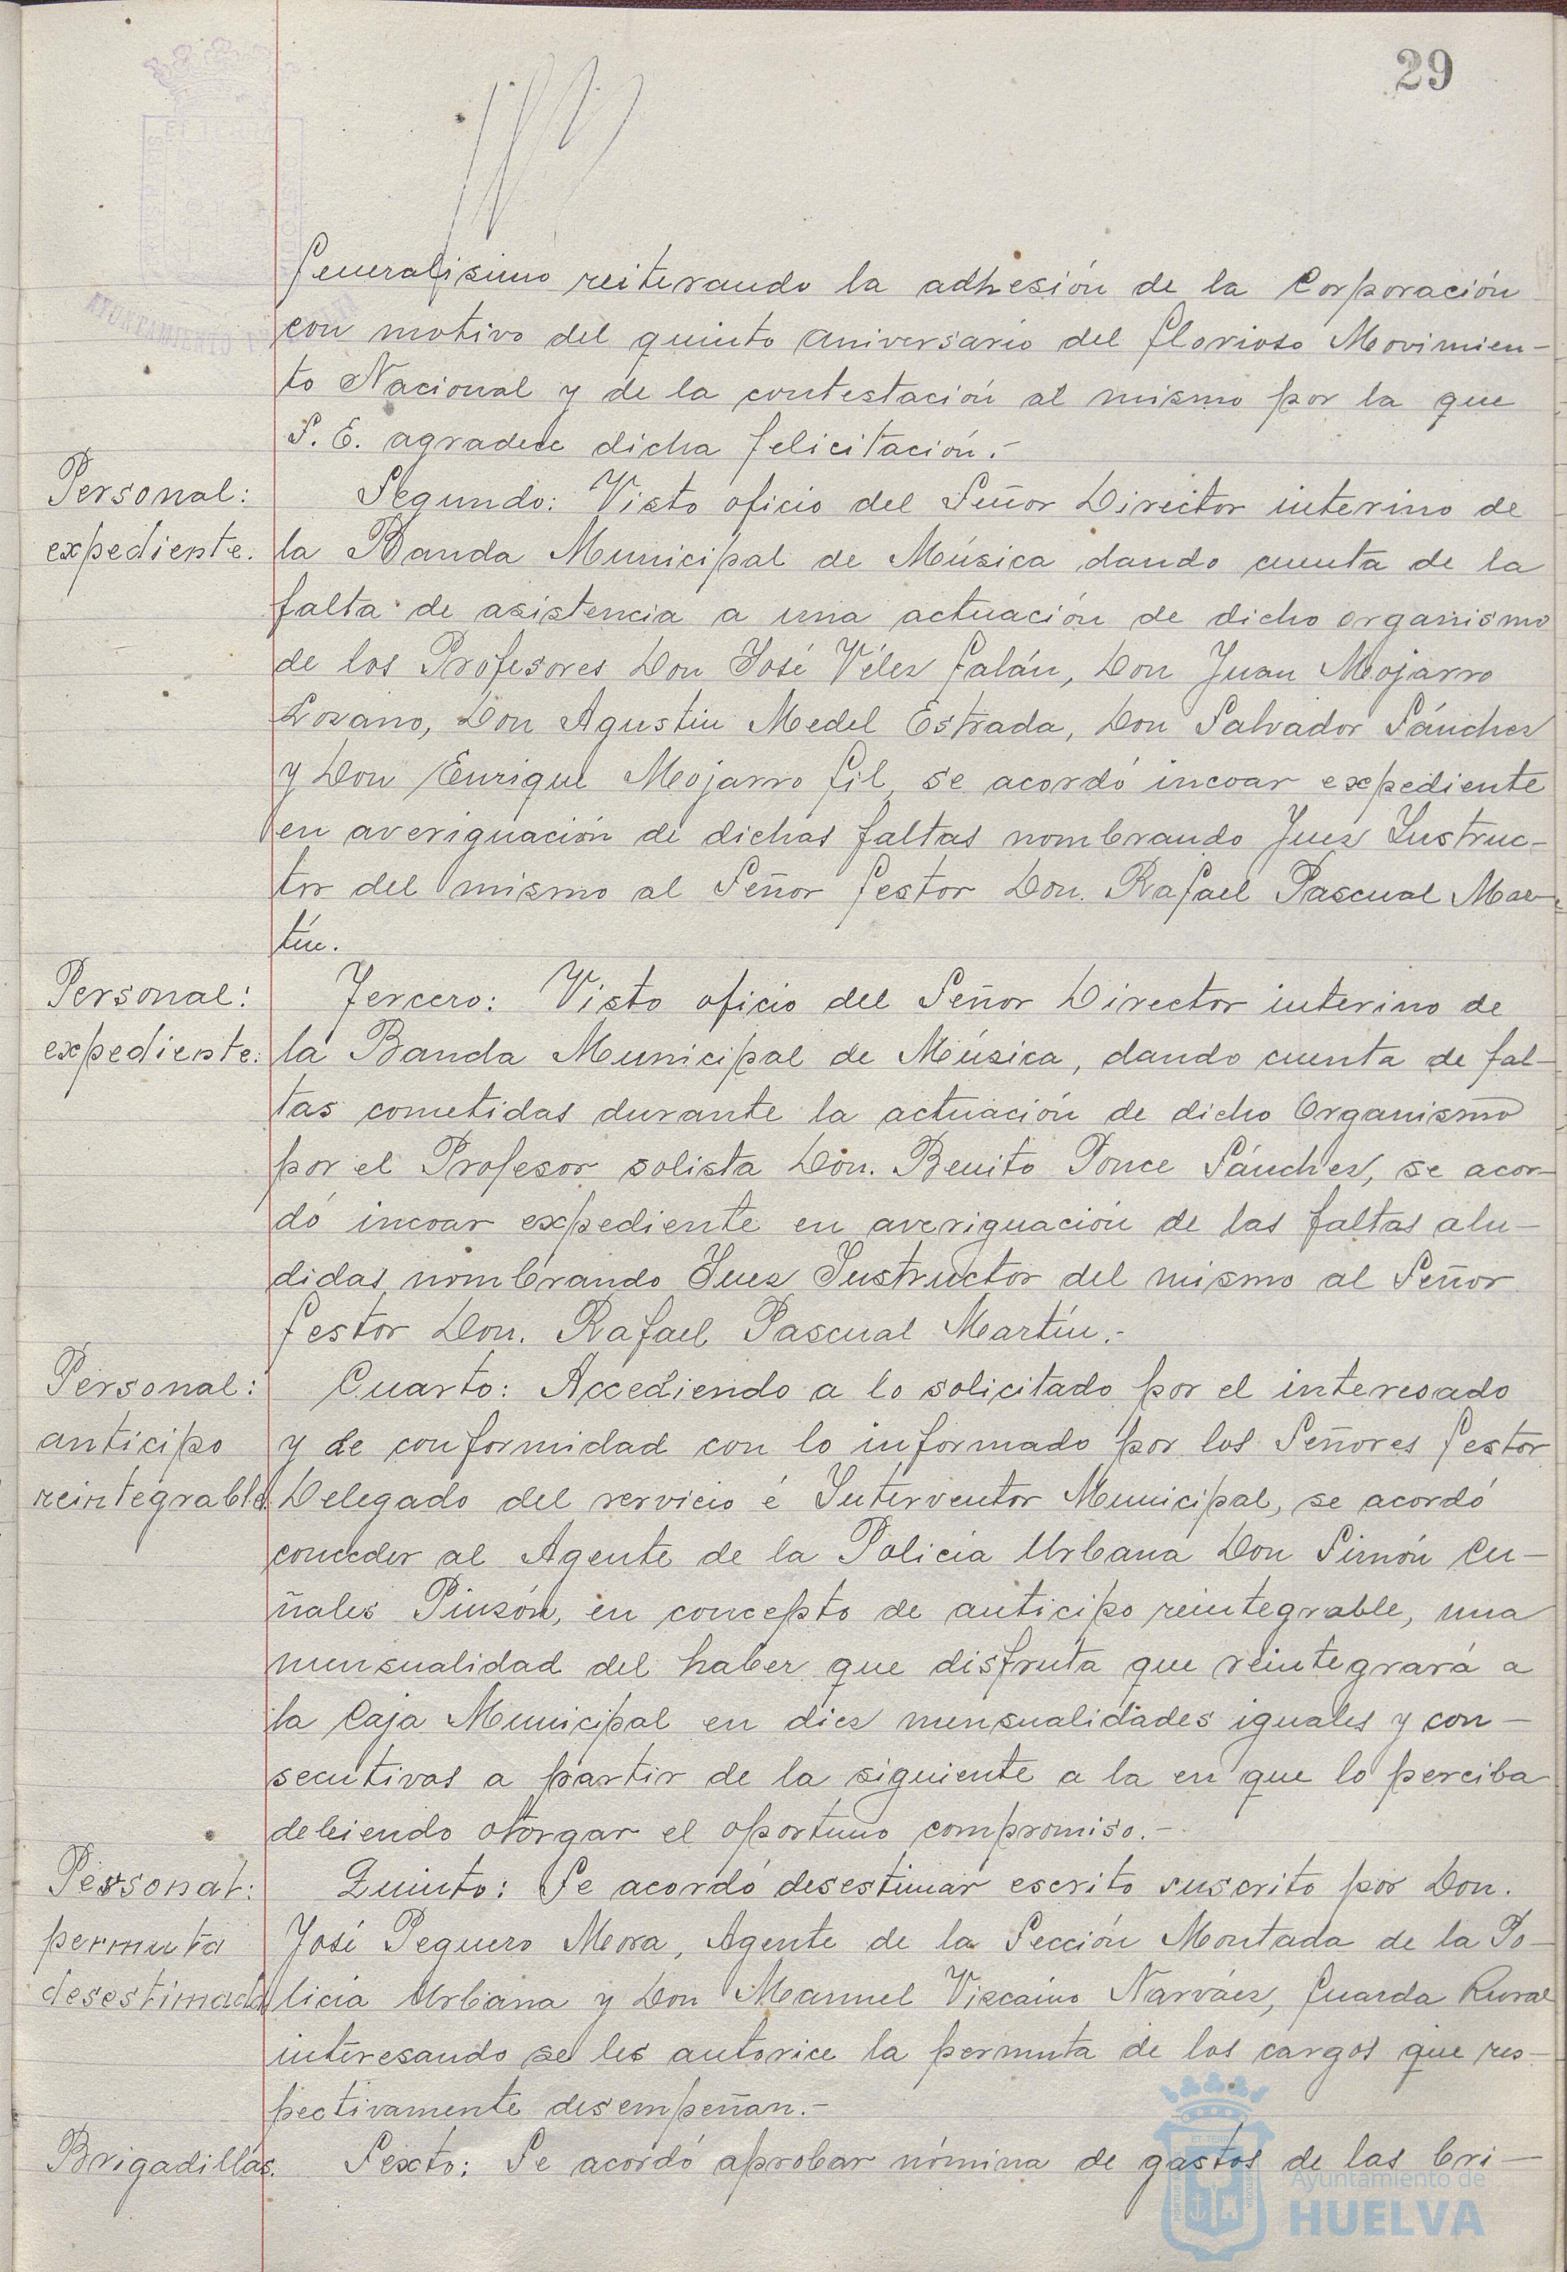 29
Generalísimo reiterando la adhesión de la Corporación
con motivo del quinto aniversario del Glorioso Movimien-
to Nacional y de la contestación al mismo por la que
S. E. agradece dicha felicitación.-
Personal:
expediente.
Segundo: Visto oficio del Señor Director interino de
la Banda Municipal de Música dando cuenta de la
falta de asistencia a una actuación de dicho organismo
de los Profesores Don José Vélez Galán, Don Juan Mojarro
Lozano, Don Agustín Medel Estrada, Don Salvador Sánchez
y Don Enrique Mojarro Gil, se acordó incoar expediente
en averiguación de dichas faltas nombrando Juez Instruc-
tor del mismo al Señor Gestor Don. Rafael Pascual Mar-
tín.
Personal:
expediente.
Tercero: Visto oficio del Señor Director interino de
la Banda Municipal de Música, dando cuenta de fal-
tas cometidas durante la actuación de dicho Organismo
por el Profesor solista Don. Benito Ponce Sánchez, se acor-
dó incoar expediente en averiguación de las faltas alu-
didas nombrando Juez Instructor del mismo al Señor
Gestor Don. Rafael Pascual Martín.-
Personal:
anticipo
reintegrable
Cuarto: Accediendo a lo solicitado por el interesado
y de conformidad con lo informado por los Señores Gestor
Delegado del servicio é Interventor Municipal, se acordó
conceder al Agente de la Policía Urbana Don Simón Cu-
ñales Pinzón, en concepto de anticipo reintegrable, una
mensualidad del haber que disfruta que reintegrará a
la Caja Municipal en diez mensualidades iguales y con-
secutivas a partir de la siguiente a la en que lo perciba
debiendo otorgar el oportuno compromiso.-
Personal:
permuta
desestimada
Quinto: Se acordó desestimar escrito suscrito por Don.
José Peguero Mora, Agente de la Sección Montada de la Po-
licía Urbana y Don Manuel Vizcaíno Narváez, Guarda Rural
interesando se les autorice la permuta de los cargos que res-
pectivamente desempeñan.-
Brigadillas.
Sexto: Se acordó aprobar nómina de gastos de las bri-
Ayuntamiento de
HUELVA